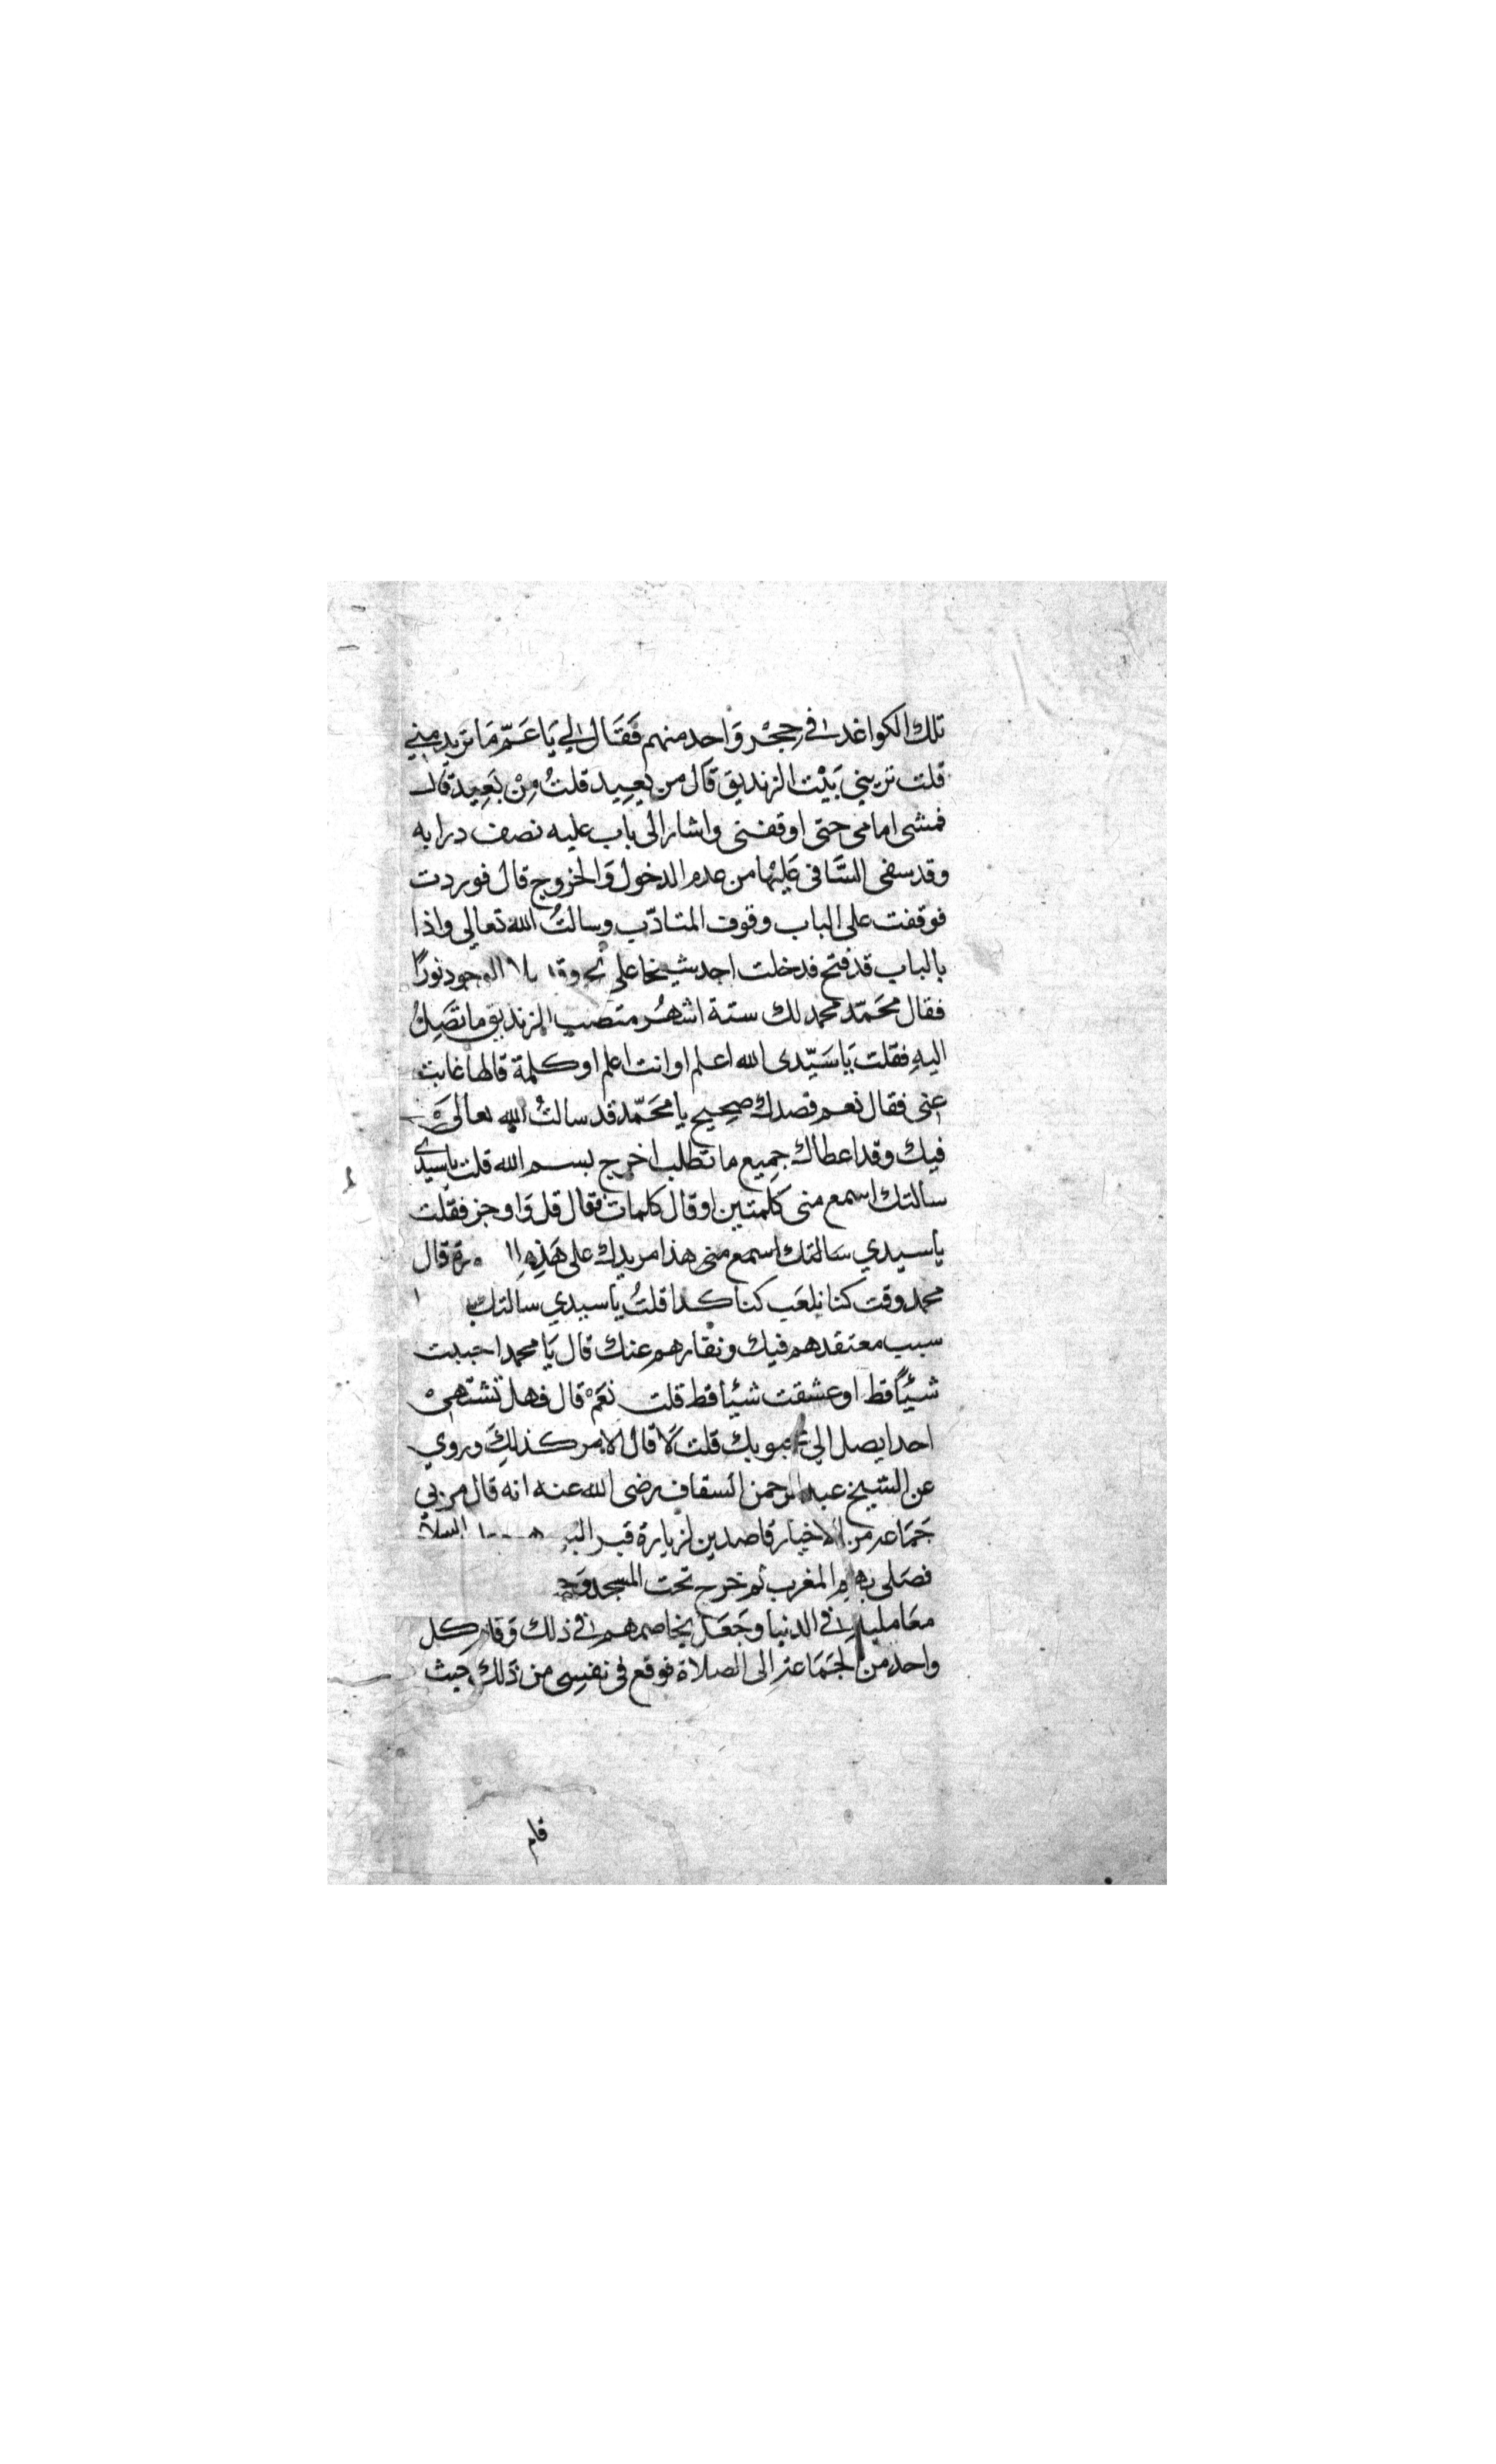 تلك الكواغد في حجر واحد منهم فَقَال لي يَا عَمّ مَا تريد مني
قلت تريني بَيْت الزنديق قال من بعيد قلتُ مِنْ بَعِيد قال
فمشى امامي حتى اوقفنى واشار الى باب عليه نصف درابه
وقد سفى السَّافى عَليْها من عدم الدخول وَالخروج قال فوردت
فوقفت على الباب وقوف المتادّب وسالتُ الله تعالى واذا
بالباب قد فتح فدخلت اجد شيخا على نحو الوجود نورًا
فقال محَمّد محمد لك ستة اشهُر متصب الزنديق ما تصِلُ
اليهِ فقلت يَا سَيّدى الله اعلم او انت اعلم او كلمة قالها غابت
عنى فقال نعم قصدك صحِيح يا محَمّد قد سالتُ الله تعالىَ
فيك وقد اعطاك جمِيع ما تطلب اخرج بسم الله قلت ياسيدي
سالتك اسمع منى كلمتين او قال كلمات فقال قل وَاوجز فقلت
ياسيدي سَالتك اسمع منى هذا مريدك على هَذِهِ قال
محمد وقت كنا نلعَب كنا كدا قلتُ ياسيدي سالتك
سبب معتقدهم فيك ونقارهم عنك قال يَا محمد احببت
شيئًا قط او عشقت شيْا قط قلت نعَمْ قال فهل تشتهىْ
احدا يصل الي محبوبك قلت لَا قال الامر كذلِكَ وروي
عن الشيخ عبد الرحمن السقاف رضى الله عنه انه قال مر بي
جَمَاعه من الاخيار قاصدين لزيارة قبر السلام
فصَلى بهم المغرب ثم خرج تحت المسجد
معَامليه في الدنيا وجَعَل يخاصمهم في ذلك وَقام كل
واحد من الجَمَاعة الى الصلاة فوقع فى نفسِى من ذلك حيث
قام